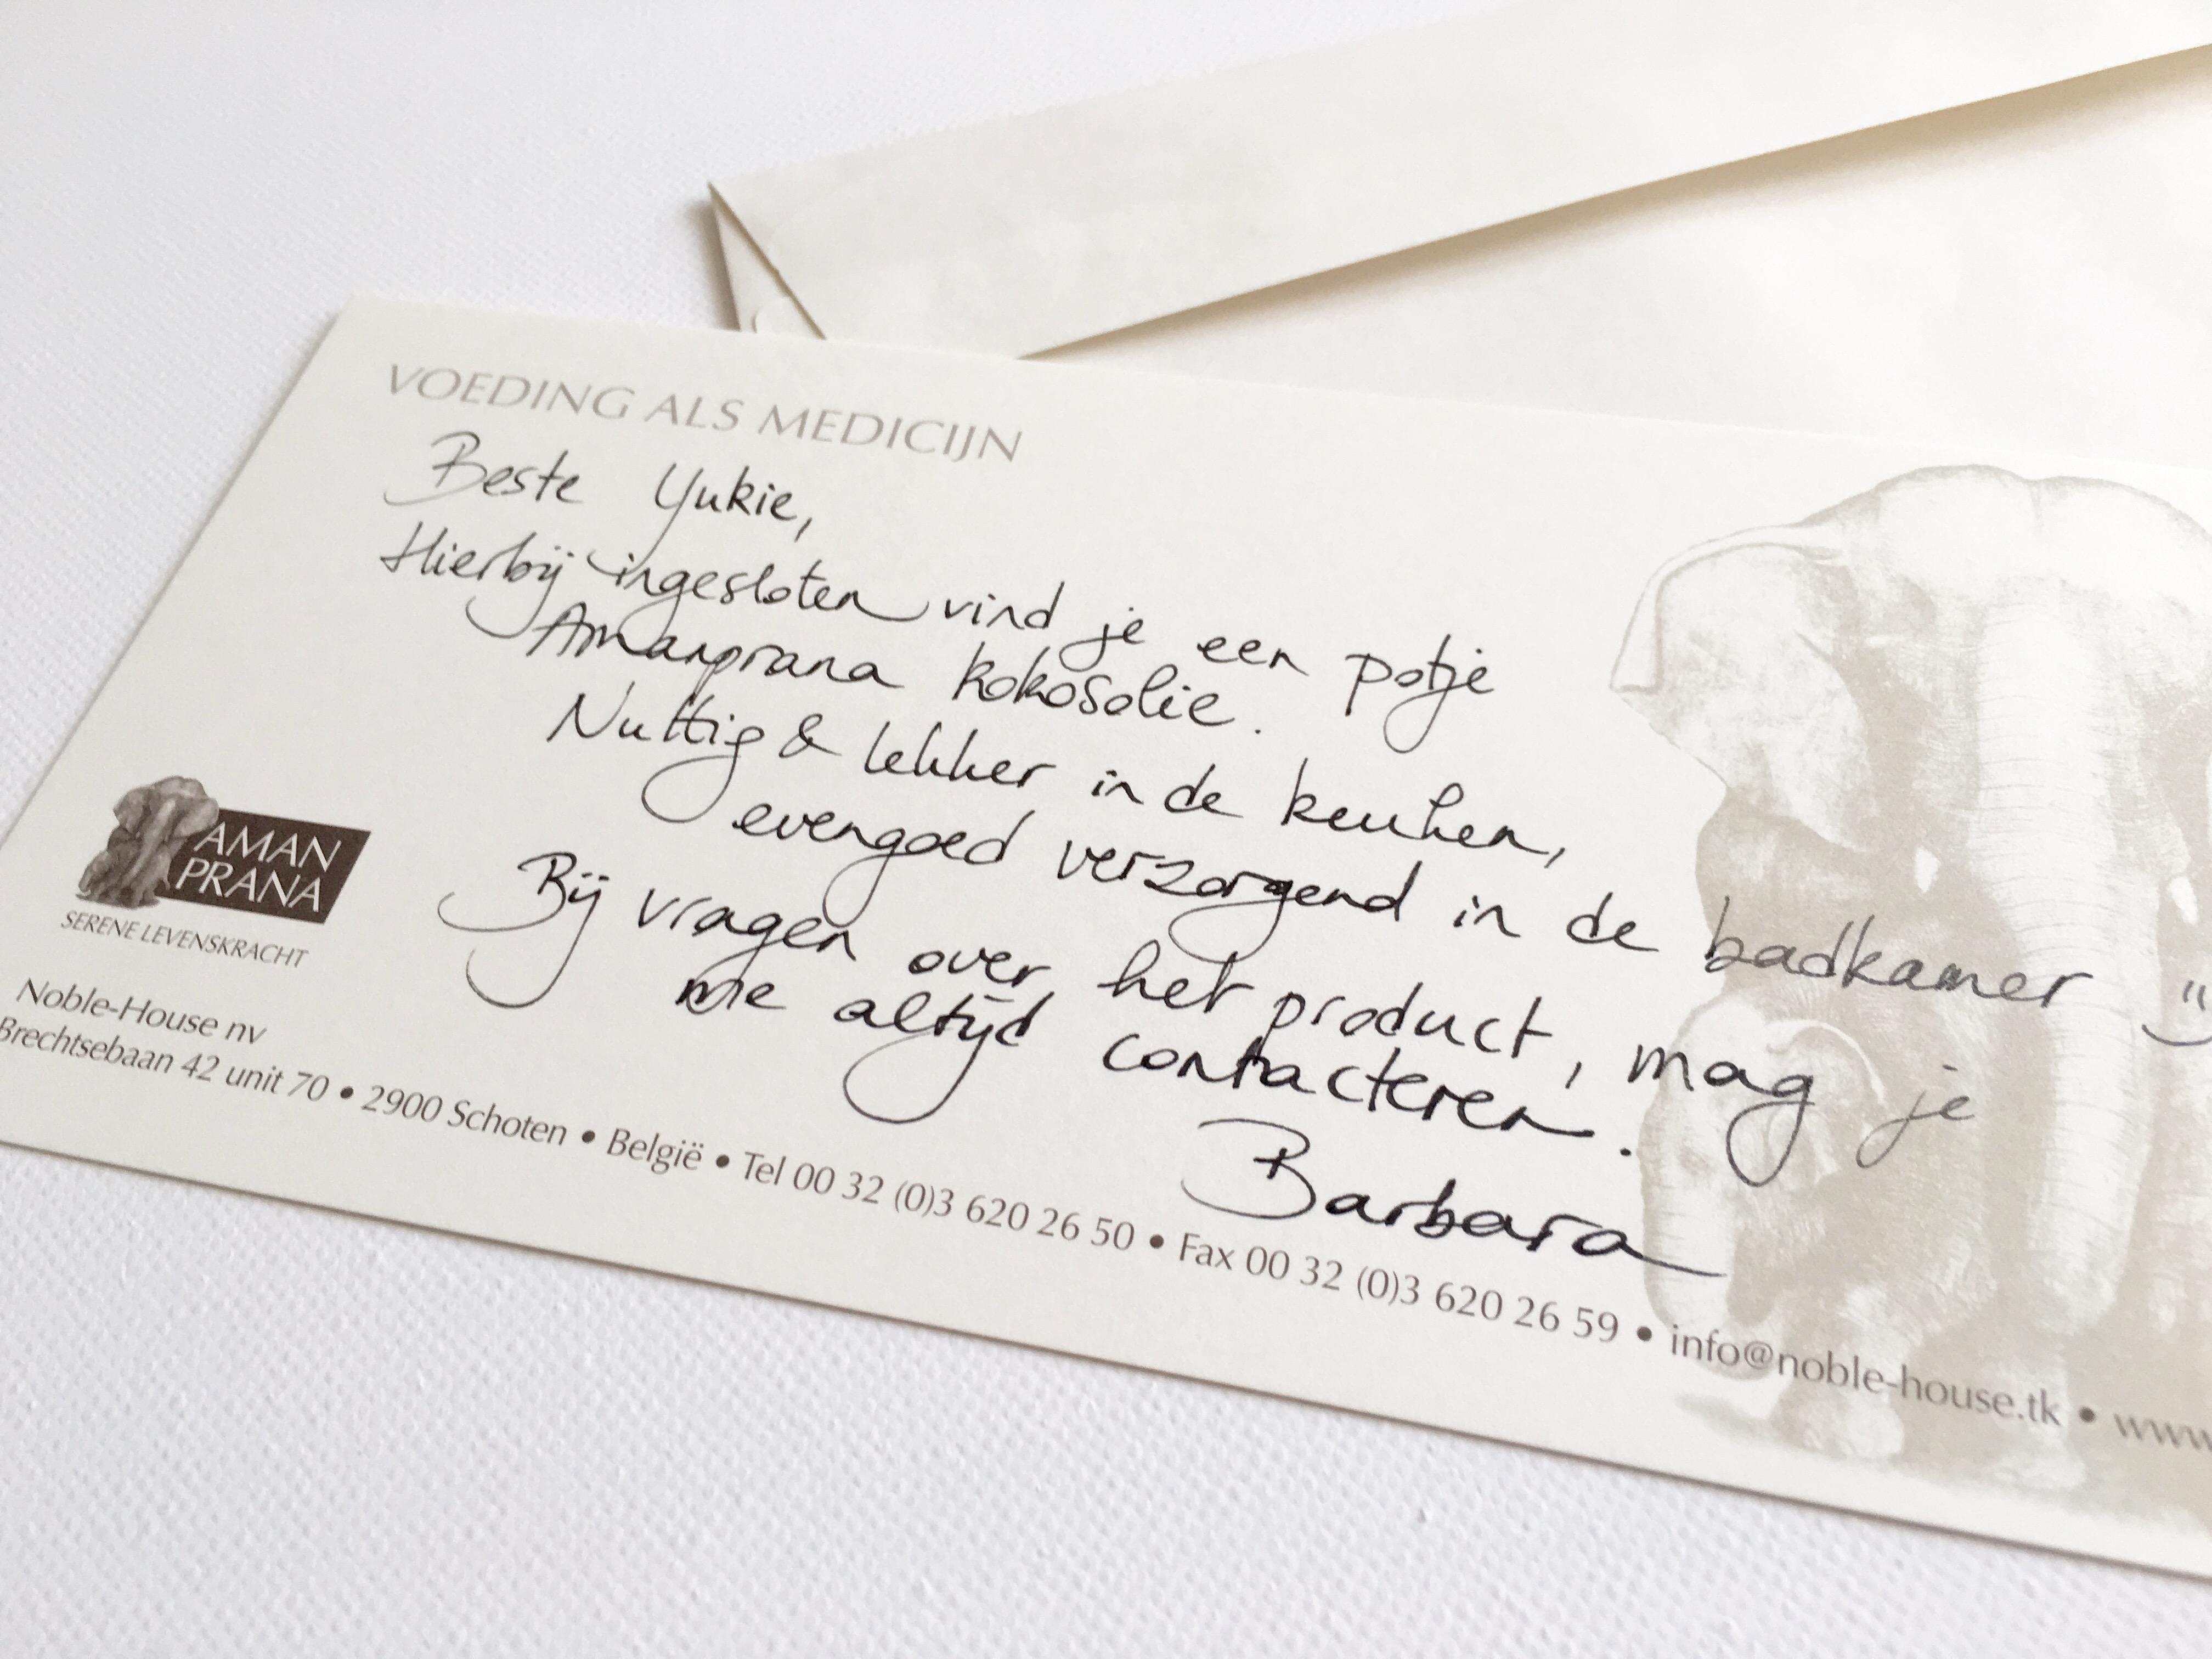 VOEDING ALS MEDICIJN
Beste Yukie,
Hierbij ingesloten vind je een potje
Amanprana kokosolie.
Nuttig & lekker in de keuken,
evengoed verzorgend in de badkamer
Bij vragen over het product, mag je
me altijd contacteren.
Barbara
AMAN
PRANA
SERENE LEVENSKRACHT
Noble-House nv
Brechtsebaan 42 unit 70 • 2900 Schoten • België • Tel 00 32 (0)3 620 26 50 • Fax 00 32 (0)3 620 26 59 • info@noble-house.tk • www